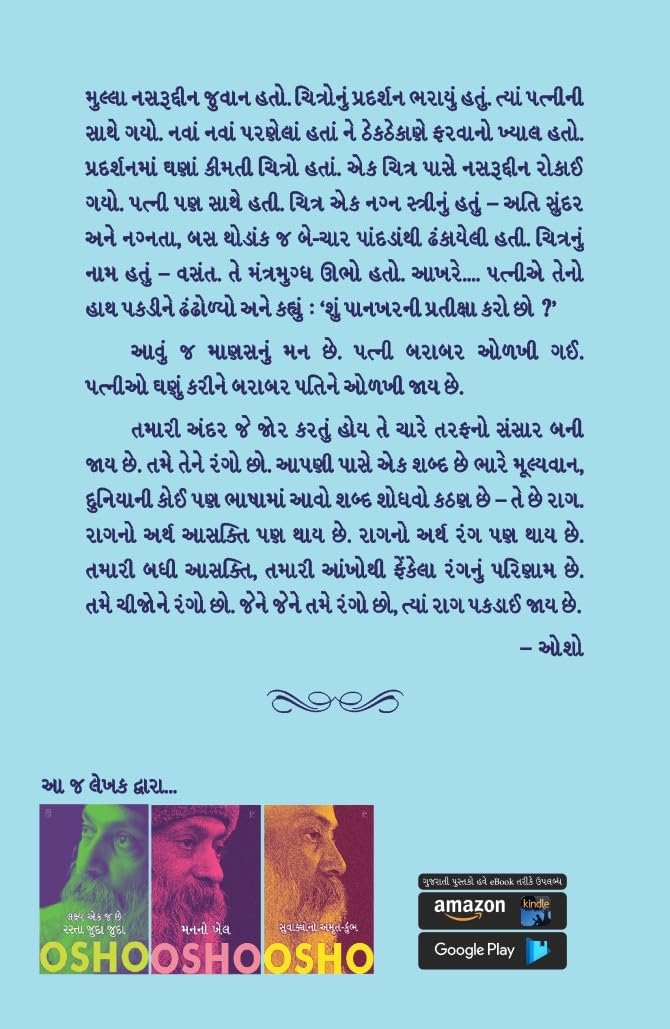 મુલ્લા નસરૂદ્દીન જુવાન હતો. ચિત્રોનું પ્રદર્શન ભરાયું હતું. ત્યાં પત્નીની
સાથે ગયો. નવાં નવાં પરણેલાં હતાં ને ઠેકઠેકાણે ફરવાનો ખ્યાલ હતો.
પ્રદર્શનમાં ઘણાં કીમતી ચિત્રો હતાં. એક ચિત્ર પાસે નસરૂદ્દીન રોકાઈ
ગયો. પત્ની પણ સાથે હતી. ચિત્ર એક નગ્ન સ્ત્રીનું હતું – અતિ સુંદર
અને નગ્નતા, બસ થોડાંક જ બે-ચાર પાંદડાંથી ઢંકાયેલી હતી. ચિત્રનું
નામ હતું – વસંત. તે મંત્રમુગ્ધ ઊભો હતો. આખરે.... પત્નીએ તેનો
હાથ પકડીને ઢંઢોળ્યો અને કહ્યું : ‘શું પાનખરની પ્રતીક્ષા કરો છો ?’
આવું જ માણસનું મન છે. પત્ની બરાબર ઓળખી ગઈ.
પત્નીઓ ઘણું કરીને બરાબર પતિને ઓળખી જાય છે.
તમારી અંદર જે જોર કરતું હોય તે ચારે તરફનો સંસાર બની
જાય છે. તમે તેને રંગો છો. આપણી પાસે એક શબ્દ છે ભારે મૂલ્યવાન,
દુનિયાની કોઈ પણ ભાષામાં આવો શબ્દ શોધવો કઠણ છે – તે છે રાગ.
રાગનો અર્થ આસક્તિ પણ થાય છે. રાગનો અર્થ રંગ પણ થાય છે.
તમારી બધી આસક્તિ, તમારી આંખોથી ફેંકેલા રંગનું પરિણામ છે.
તમે ચીજોને રંગો છો. જેને જેને તમે રંગો છો, ત્યાં રાગ પકડાઈ જાય છે.
– ઓશો
આ જ લેખક દ્વારા...
લક્ષ્ય એક જ છે
રસ્તા જુદા જુદા
OSHO
મનનો ખેલ
OSHO
સુવાક્યોનો અમૃત-કુંભ
OSHO
ગુજરાતી પુસ્તકો હવે eBook તરીકે ઉપલબ્ધ
amazon kindle
Google Play